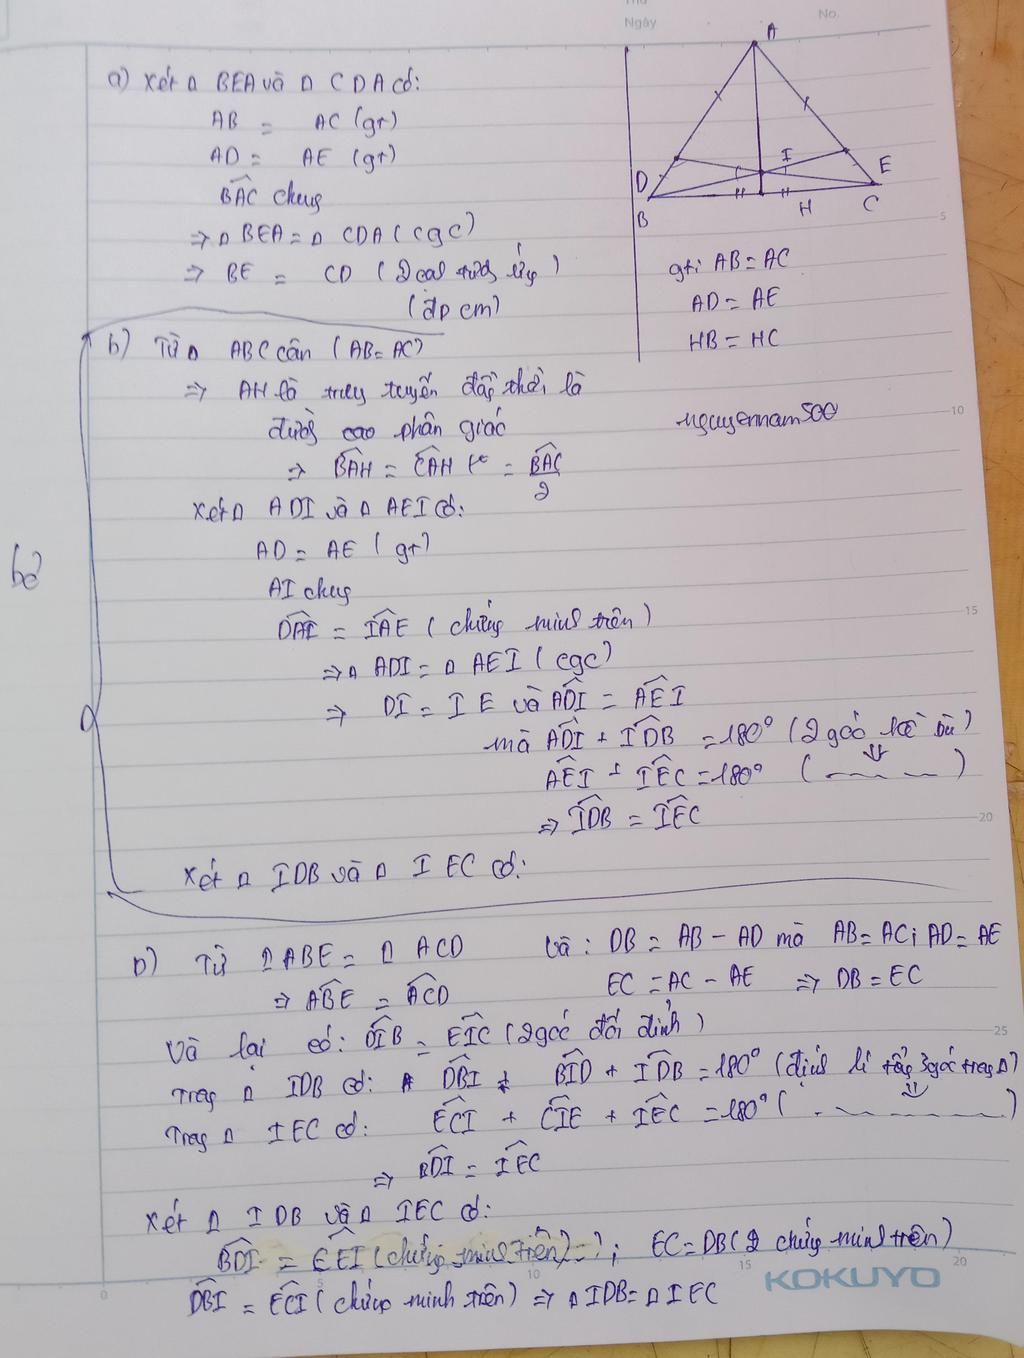 Ngày
No.
A
I
D
E
B
H
C
a) Xét Δ BEA và Δ CDA có:
AB = AC (gt)
AD = AE (gt)
BAC chung
=> Δ BEA = Δ CDA (cgc)
=> BE = CD (2 cạnh tương ứng)
(đpcm)
gt: AB = AC
AD = AE
HB = HC
nguyennam500
b) Từ Δ ABC cân (AB = AC)
=> AH là trung tuyến đồng thời là
đường cao phân giác
=> BAH = CAH = BAC
2
Xét Δ ADI và Δ AEI có:
AD = AE (gt)
AI chung
DAI = IAE (chứng minh trên)
=> Δ ADI = Δ AEI (cgc)
=> DI = IE và ADI = AEI
mà ADI + IDB = 180° (2 góc kề bù)
AEI + IEC = 180° ( )
=> IDB = IEC
Xét Δ IDB và Δ IEC có:
bỏ
b) Từ Δ ABE = Δ ACD
=> ABE = ACD
Và: DB = AB - AD mà AB = AC; AD = AE
EC = AC - AE => DB = EC
Và lại có: DIB = EIC (2 góc đối đỉnh)
Trong Δ IDB có: DBI + BID + IDB = 180° (định lí tổng 3 góc trong Δ)
Trong Δ IEC có: ECI + CIE + IEC = 180° ( )
=> BDI = IEC
Xét Δ IDB và Δ IEC có:
BDI = CEI (chứng minh trên); EC = DB (chứng minh trên)
DBI = ECI (chứng minh trên) => Δ IDB = Δ IEC
5
10
15
20
25
0
5
10
15
20
KOKUYO